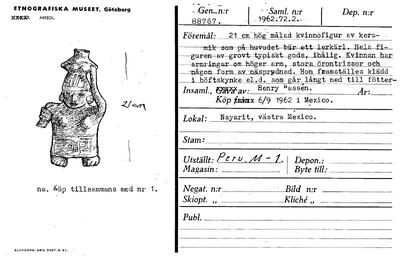 ETNOGRAFISKA MUSEET, Göteborg
ARKEOL.
21 cm
na. Köp tillsammans med nr 1.
ELANDERS, GBG. 5907. 5. 61.
Gen.n:r
88767.
Saml. n:r
1962.72.2.
Dep. n:r
Föremål: 21 cm hög målad kvinnofigur av kera-
mik som på huvudet bär ett lerkärl. Hela fi-
guren av grovt typiskt gods, ihålig. Kvinnan har
armringar om höger arm, stora örontrissor och
någon form av näsprydned. Hon framställes klädd
i höftskynke el.d. som går långt ned till fötter-
Insaml., Gåva av: Henry Wassén. År:
Köp från: 6/9 1962 i Mexico.
Lokal: Nayarit, västra Mexico.
Stam:
Utställt: Peru, M-1. Depon.:
Magasin: Byte till:
Negat. n:r Bild n:r
Skiopt. „ Kliché „
Publ.